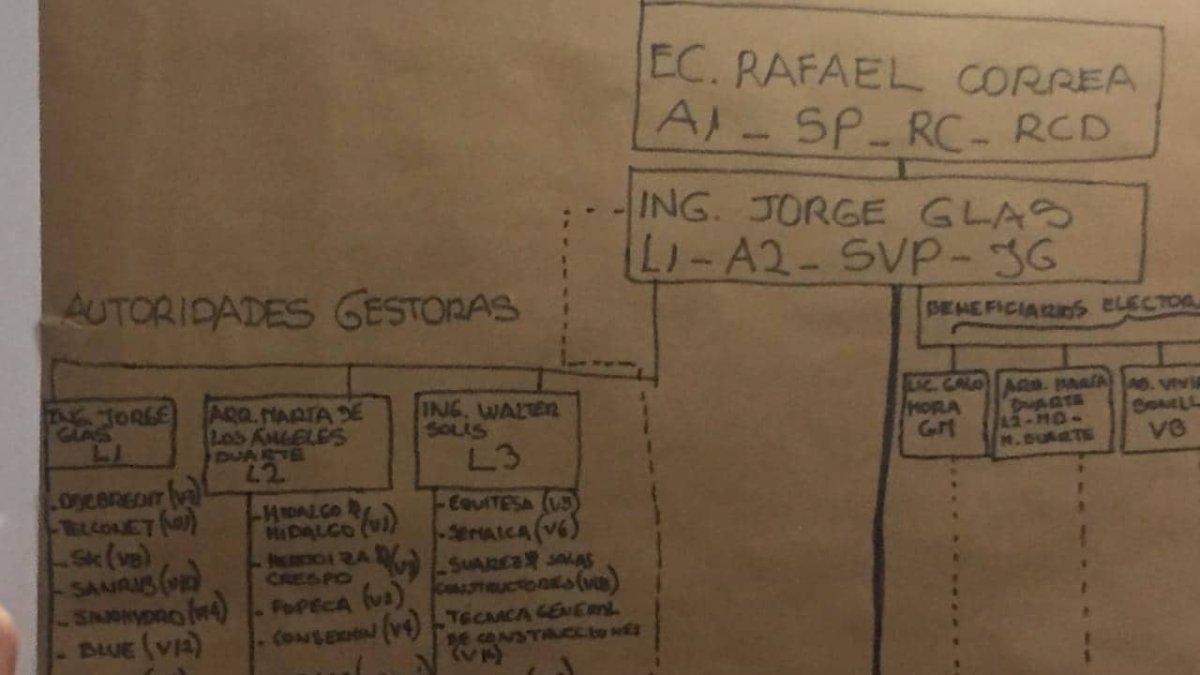 EC. RAFAEL CORREA
A1 - SP - RC - RCD
ING. JORGE GLAS
L1 - A2 - SVP - JG
AUTORIDADES GESTORAS
BENEFICIARIOS ELECTOR
ING. JORGE
GLAS
L1
ARQ. MARIA DE
LOS ÁNGELES
DUARTE
L2
ING. WALTER
SOLIS
L3
LIC. GALO
MORA
GM
ARQ. MARÍA
DUARTE
L2 - MD -
M. DUARTE
AB. VIVIA
BONILL
VB
- ODEBRECHT
- TELCONET
- SK (V8)
- SANRIB
- SINOHYDRO (V14)
- BLUE (V12)
- HIDALGO &
HIDALGO (V1)
- HERDOIZA
CRESPO
- FOPECA (V2)
- CONSERMIN (V4)
- EQUITESA (V5)
- SEMAICA (V6)
- SUAREZ & SALAS
CONSTRUCTORES
- TECNICA GENERAL
DE CONSTRUCCIONES